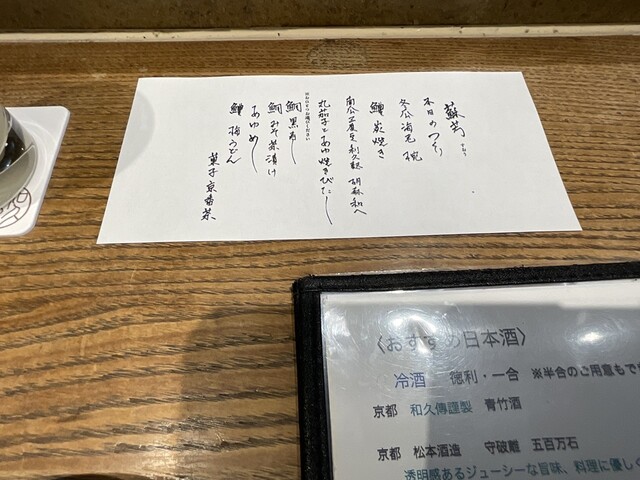 蘇芳
すおう
本日のつくり
冬瓜海老 椀
鱧 炭焼き
南瓜 利久麸 胡麻和へ
丸茄子とあゆ焼きびたし
お選びください
鯛
鯛 みそ茶漬け
あゆめし
鱧 梅うどん
菓子 京番茶
〈おすすめ日本酒〉
冷酒 徳利・一合 ※半合のご用意もで
京都 和久傳謹製 青竹酒
京都 松本酒造 守破離 五百万石
透明感あるジューシーな旨味、料理に優しく